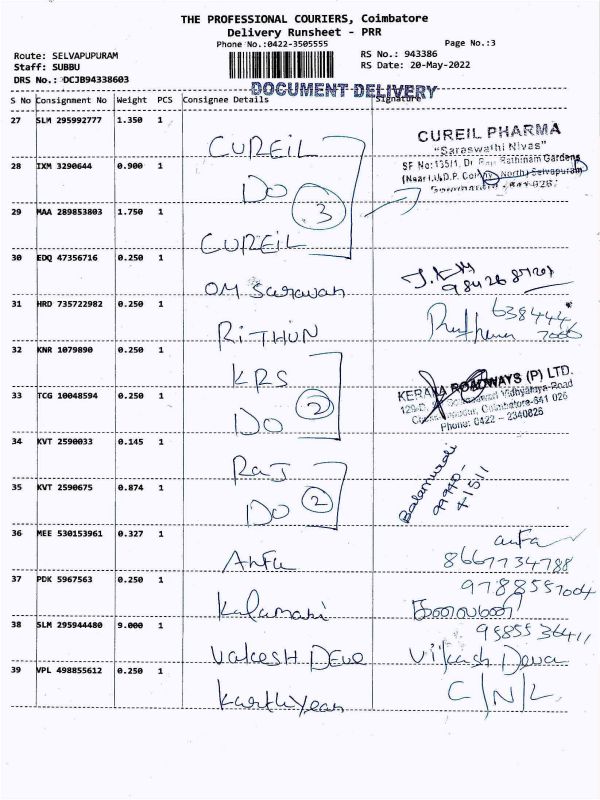 THE PROFESSIONAL COURIERS, Coimbatore
Delivery Runsheet - PRR
Phone No.:0422-3505555
Page No.:3
Route: SELVAPUPURAM
RS No.: 943386
Staff: SUBBU
RS Date: 20-May-2022
DRS No.: DCJB94338603
DOCUMENT DELIVERY
S No Consignment No Weight PCS Consignee Details Signature
27 SLM 295992777 1.350 1
CUREIL
CUREIL PHARMA
"Saraswathi Nivas"
SF No: 135/1, Dr. Rathinam Gardens
28 IXM 3290644 0.900 1
(Near I.U.D.P. Colony, North) Selvapuram
DO
3
29 MAA 289853803 1.750 1
CUREIL
30 EDQ 47356716 0.250 1
OM Saravan
31 HRD 735722982 0.250 1
638444
RITHUN
32 KNR 1079890 0.250 1
KRS
KERALA ROADWAYS (P) LTD.
33 TCG 10048594 0.250 1
Vidhyalaya Road
Coimbatore-641 026
Phone: 0422 - 2340026
DO 2
34 KVT 2590033 0.145 1
RAJ
Balamurali
99940-
41511
35 KVT 2590675 0.874 1
DO 2
36 MEE 530153961 0.327 1
Anfa
anfa
8667734788
37 PDK 5967563 0.250 1
9788557004
Kalamani
38 SLM 295944480 9.000 1
9585536411
VAKESH DEVE
Vikash Deva
39 VPL 498855612 0.250 1
C/N/L
Karthyean